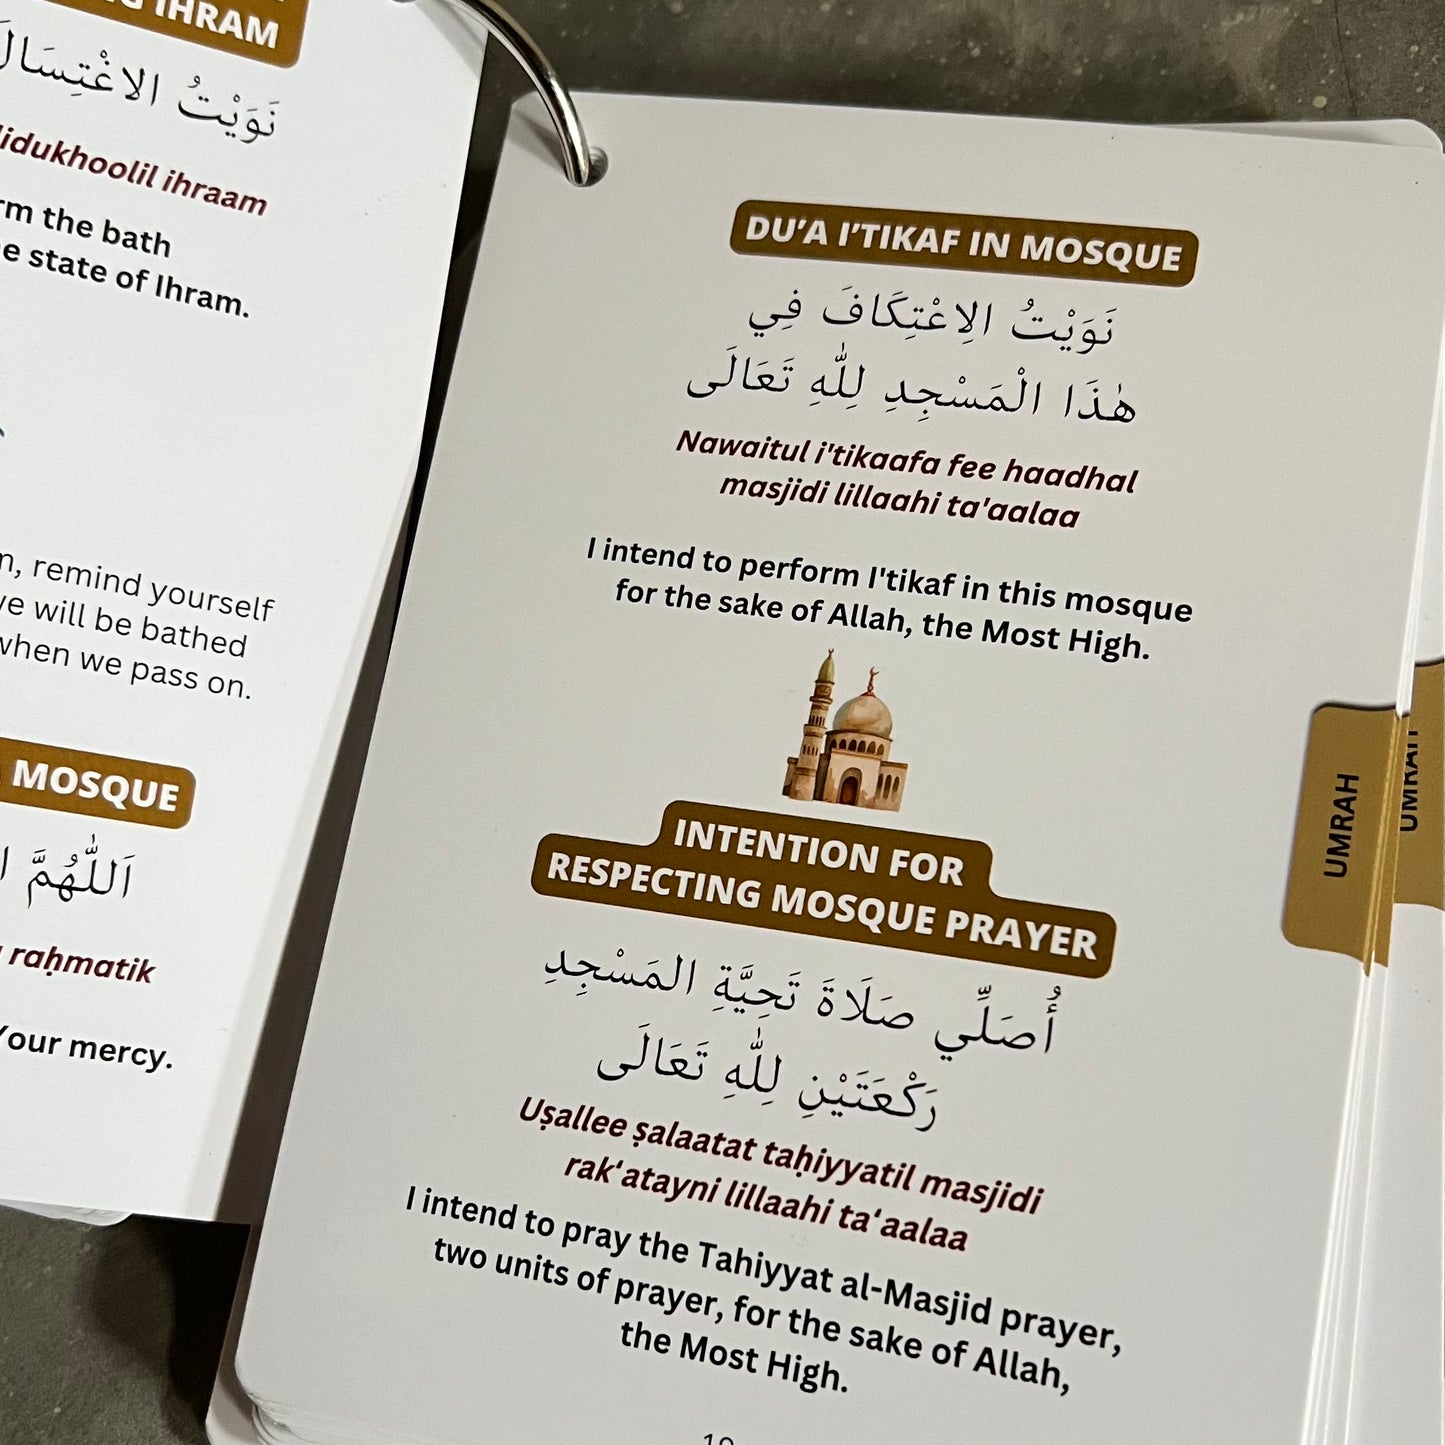 IHRAM
نَوَيْتُ الاغْتِسَالَ
lidukhoolil ihraam
the bath
state of Ihram.
remind yourself
will be bathed
when we pass on.
MOSQUE
اَللّٰهُمَّ
raḥmatik
Your mercy.
DU'A I'TIKAF IN MOSQUE
نَوَيْتُ الِاعْتِكَافَ فِي
هٰذَا الْمَسْجِدِ لِلّٰهِ تَعَالَى
Nawaitul i'tikaafa fee haadhal
masjidi lillaahi ta'aalaa
I intend to perform I'tikaf in this mosque
for the sake of Allah, the Most High.
INTENTION FOR
RESPECTING MOSQUE PRAYER
أُصَلِّي صَلَاةَ تَحِيَّةِ المَسْجِدِ
رَكْعَتَيْنِ لِلّٰهِ تَعَالَى
Uṣallee ṣalaatat taḥiyyatil masjidi
rak'atayni lillaahi ta'aalaa
I intend to pray the Tahiyyat al-Masjid prayer,
two units of prayer, for the sake of Allah,
the Most High.
UMRAH
UMRAH